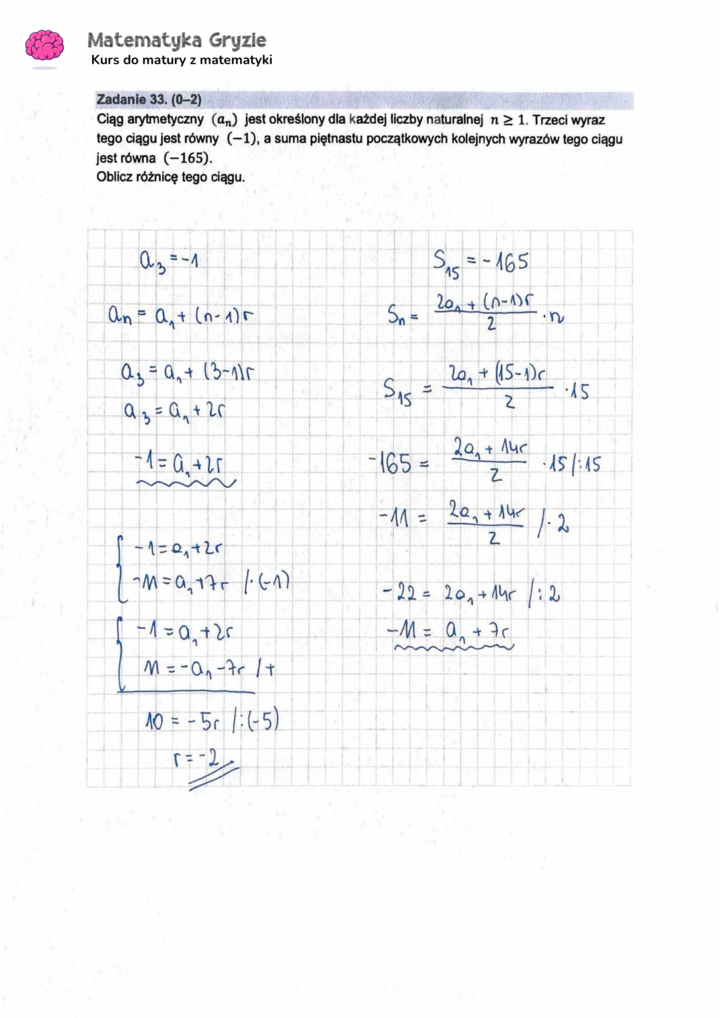 Matematyka Gryzie
Kurs do matury z matematyki
Zadanie 33. (0–2)
Ciąg arytmetyczny (aₙ) jest określony dla każdej liczby naturalnej n ≥ 1. Trzeci wyraz
tego ciągu jest równy (−1), a suma piętnastu początkowych kolejnych wyrazów tego ciągu
jest równa (−165).
Oblicz różnicę tego ciągu.
a₃ = -1
aₙ = a₁ + (n-1)r
a₃ = a₁ + (3-1)r
a₃ = a₁ + 2r
-1 = a₁ + 2r
-1 = a₁ + 2r
-11 = a₁ + 7r /·(-1)
-1 = a₁ + 2r
11 = -a₁ - 7r /+
10 = -5r /:(-5)
r = -2
S₁₅ = -165
Sₙ = (2a₁ + (n-1)r)/2 · n
S₁₅ = (2a₁ + (15-1)r)/2 · 15
-165 = (2a₁ + 14r)/2 · 15 /:15
-11 = (2a₁ + 14r)/2 /·2
-22 = 2a₁ + 14r /:2
-11 = a₁ + 7r